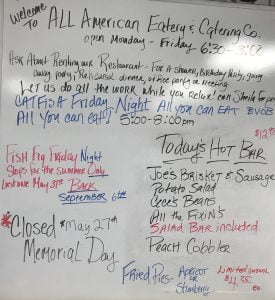 Welcome To ALL American Eatery & Catering Co.
open Monday - Friday 6:30-3:00
Ask About Renting our Restaurant - For A shower, Birthday Party, going
away party, Rehearsal dinner, office party or meeting
Let us do all the work while you relax!
CATFISH Friday - Night All you can EAT BYOB
All you can eat! 5:00-8:00pm
$12.95
Fish Fry Friday Night
Stops for the summer Only
Last one May 31st Back
September 6th
Today's Hot BAR
Joe's Brisket & Sausage
Potato Salad
Cece's Beans
All the Fixin's
SALAD BAR included
Peach Cobbler
*Closed *May 27th
Memorial Day
Fried Pies - Apricot
or
Strawberry
ea.